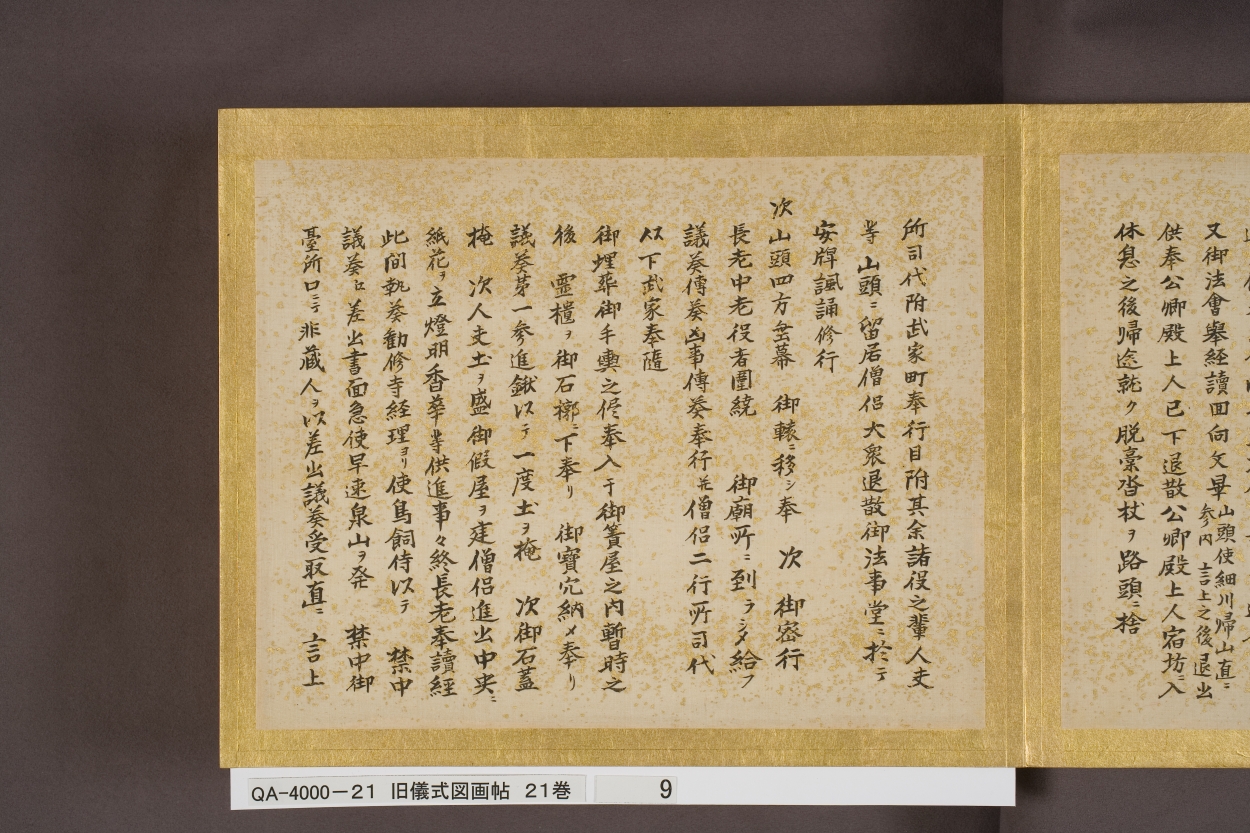 又御法會舉経讀回向文畢山頭使細川帰山直ニ
参内言上之後退出
供奉公卿殿上人已下退散公卿殿上人宿坊ニ入
休息之後帰途就ク脱藁沓杖ヲ路頭ニ捨
所司代附武家町奉行目附其余諸役之輩人支
等山頭ニ留居僧侶大衆退散御法事堂ニ於テ
安牌諷誦修行
次山頭四方垂幕 御轅ニ移シ奉 次 御密行
長老中老役者圍繞 御廟所ニ到ラシメ給フ
議奏傳奏凶事傳奏奉行并僧侶二行所司代
以下武家奉随
御埋葬御手輿之侭奉入于御簀屋之内暫時之
後 霊櫃ヲ御石槨ニ下奉リ 御寶穴納メ奉リ
議奏第一参進鍬以テ一度土ヲ掩 次御石蓋
掩 次人支土ヲ盛御假屋ヲ建僧侶進出中央ニ
紙花ヲ立燈明香華等供進事々終長老奉讀経
此間執奏勧修寺経理ヨリ使鳥飼侍以テ 禁中
議奏江差出書面急使早速泉山ヲ発 禁中御
臺所口ニテ非蔵人ヲ以差出議奏受取直ニ 言上
QA-4000-21 旧儀式図画帖 21巻 9